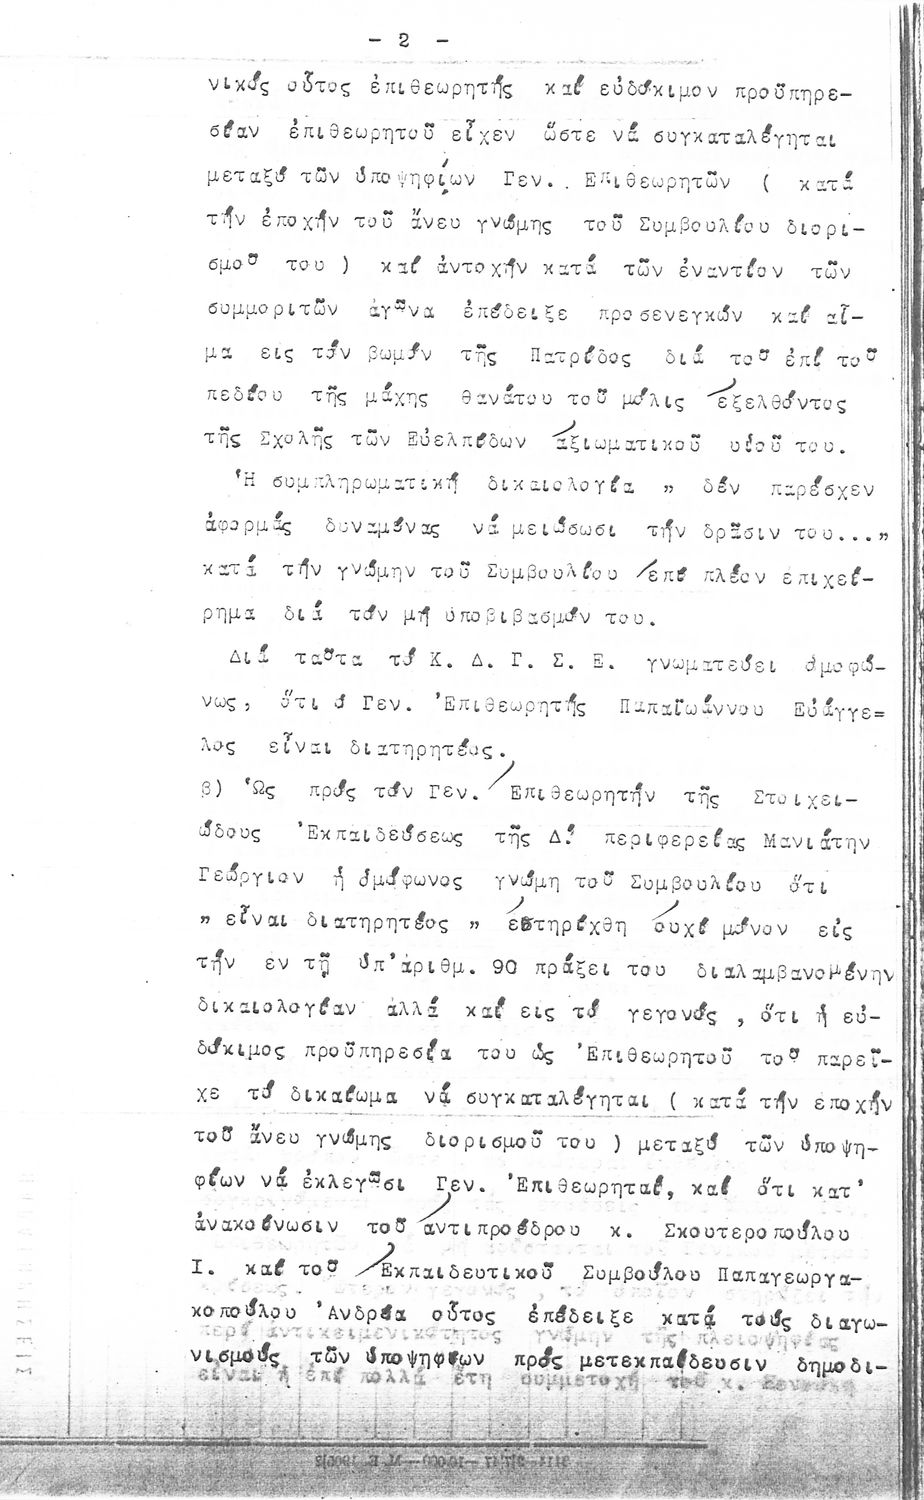 - 2 -
νικός οὗτος ἐπιθεωρητής καί εὐδόκιμον προϋπηρε-
σίαν ἐπιθεωρητοῦ εἶχεν ὥστε νά συγκαταλέγηται
μεταξύ τῶν ὑποψηφίων Γεν. Ἐπιθεωρητῶν ( κατά
τήν ἐποχήν τοῦ ἄνευ γνώμης τοῦ Συμβουλίου διορι-
σμοῦ του ) καί ἀντοχήν κατά τῶν ἐναντίον τῶν
συμμοριτῶν ἀγῶνα ἐπέδειξε προσενεγκών καί αἷ-
μα εις τόν βωμόν τῆς Πατρίδος διά τοῦ ἐπί τοῦ
πεδίου τῆς μάχης θανάτου τοῦ μόλις ἐξελθόντος
τῆς Σχολῆς τῶν Εὐελπίδων ἀξιωματικοῦ υἱοῦ του.
Ἡ συμπληρωματική δικαιολογία " δέν παρέσχεν
ἀφορμάς δυναμένας νά μειώσωσι τήν δρᾶσιν του..."
κατά τήν γνώμην τοῦ Συμβουλίου ἐπί πλέον ἐπιχεί-
ρημα διά τόν μή ὑποβιβασμόν του.
Διά ταῦτα τό Κ. Δ. Γ. Σ. Ε. γνωματεύει ὁμοφώ-
νως, ὅτι ὁ Γεν. Ἐπιθεωρητής Παπαϊωάννου Εὐάγγε=
λος εἶναι διατηρητέος.
β) Ὡς πρός τόν Γεν. Ἐπιθεωρητήν τῆς Στοιχει-
ώδους Ἐκπαιδεύσεως τῆς Δ! περιφερείας Μανιάτην
Γεώργιον ἡ ὁμόφωνος γνώμη τοῦ Συμβουλίου ὅτι
" εἶναι διατηρητέος " ἐστηρίχθη οὐχί μόνον εἰς
τήν εν τῇ ὑπ' ἀριθμ. 90 πράξει του διαλαμβανομένην
δικαιολογίαν ἀλλά καί εις τό γεγονός , ὅτι ἡ εὐ-
δόκιμος προϋπηρεσία του ὡς Ἐπιθεωρητοῦ τοῦ παρεῖ-
χε τό δικαίωμα νά συγκαταλέγηται ( κατά τήν εποχήν
τοῦ ἄνευ γνώμης διορισμοῦ του ) μεταξύ τῶν ὑποψη-
φίων νά ἐκλεγῶσι Γεν. Ἐπιθεωρηταί, καί ὅτι κατ'
ἀνακοίνωσιν τοῦ ἀντιπροέδρου κ. Σκουτεροπούλου
Ι. καί τοῦ Ἐκπαιδευτικοῦ Συμβούλου Παπαγεωργα-
κοπούλου Ἀνδρέα οὗτος ἐπέδειξε κατά τούς διαγω-
νισμούς τῶν ὑποψηφίων πρός μετεκπαίδευσιν δημοδι-